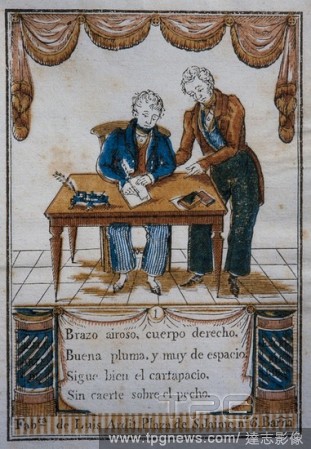 1
Brazo airoso, cuerpo derecho,
Buena pluma, y muy de espacio
Sigue bien el cartapacio
Sin caerte sobre el pecho.
de Luis Plaza de
www.tpgnews.com/達志影像